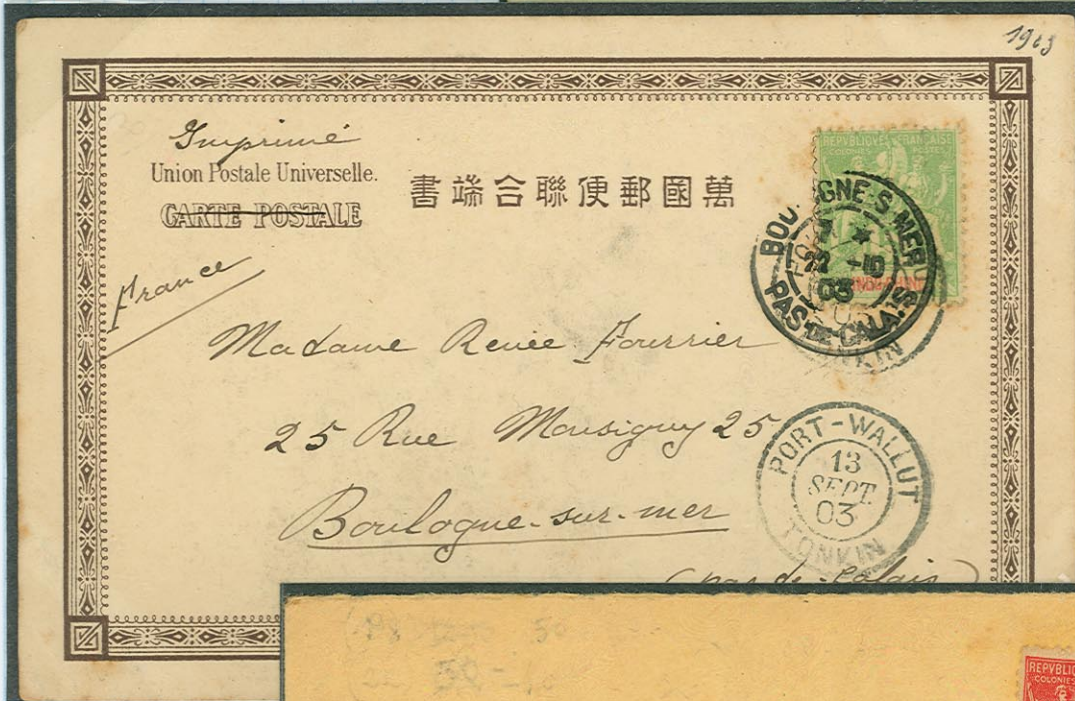 1903
Imprimé
Union Postale Universelle.
CARTE POSTALE
書端合聯便郵國萬
REPVBLIQVE FRANÇAISE
COLONIES POSTES
INDO-CHINE
BOULOGNE-S-MER
22 -10
03
PAS-DE-CALAIS
France
Madame Renée Fourrier
25 Rue Monsigny 25
Boulogne-sur-mer
(Pas de-Calais)
PORT-WALLUT
13
SEPT.
03
TONKIN
50
REPVBLIQ
COLONIES